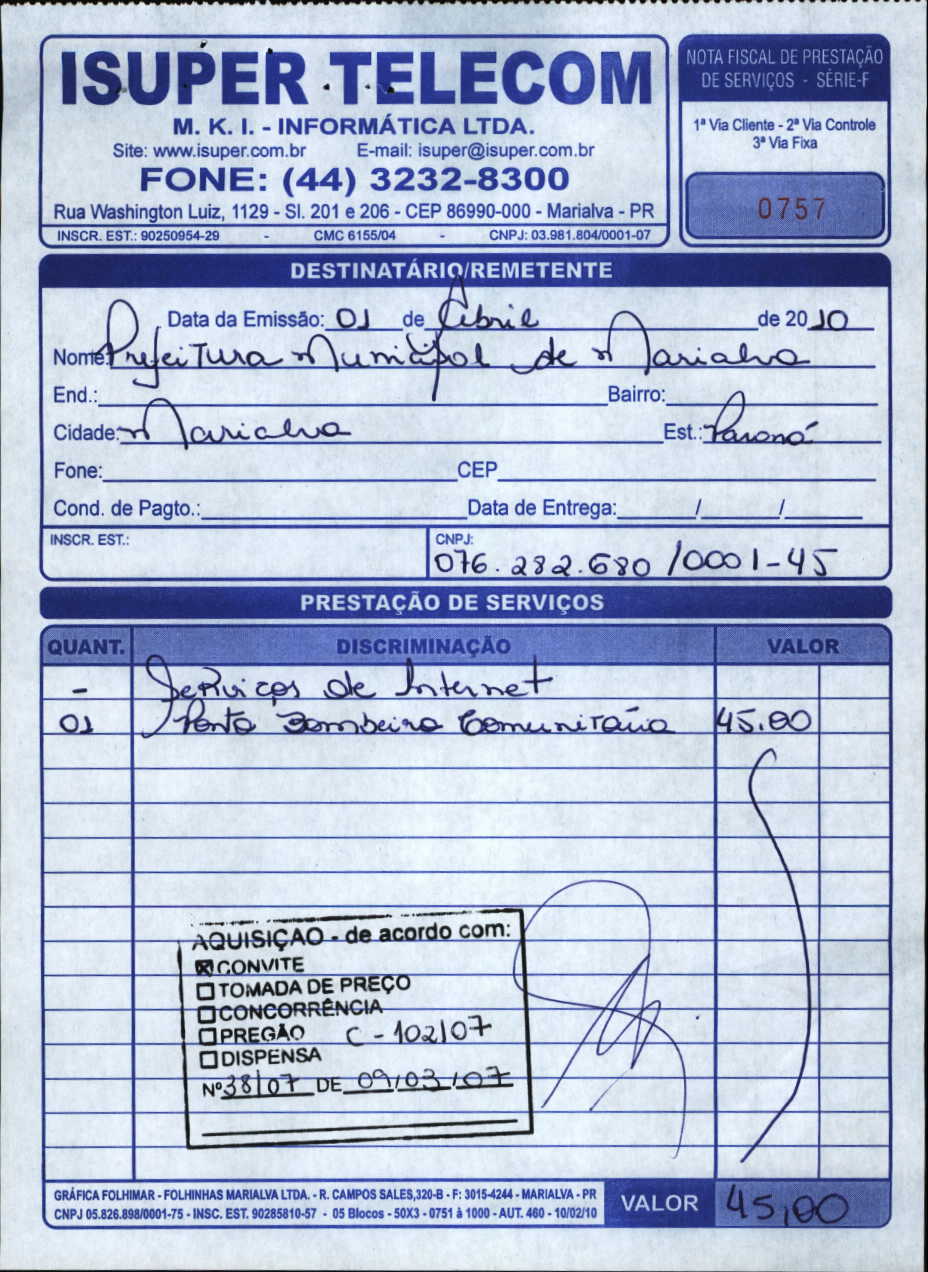 ISUPER TELECOM
M. K. I. - INFORMÁTICA LTDA.
Site: www.isuper.com.br E-mail: isuper@isuper.com.br
FONE: (44) 3232-8300
Rua Washington Luiz, 1129 - Sl. 201 e 206 - CEP 86990-000 - Marialva - PR
INSCR. EST.: 90250954-29 - CMC 6155/04 - CNPJ: 03.981.804/0001-07
NOTA FISCAL DE PRESTAÇÃO
DE SERVIÇOS - SÉRIE-F
1ª Via Cliente - 2ª Via Controle
3ª Via Fixa
0757
DESTINATÁRIO/REMETENTE
Data da Emissão: 01 de Abril de 2010
Nome: Prefeitura Municipal de Marialva
End.: Bairro:
Cidade: Marialva Est.: Paraná
Fone: CEP
Cond. de Pagto.: Data de Entrega: / /
INSCR. EST.: CNPJ:
076.282.680/0001-45
PRESTAÇÃO DE SERVIÇOS
QUANT. DISCRIMINAÇÃO VALOR
- Serviços de Internet
01 Ponto Bombeiro Comunitário 45.00
AQUISIÇÃO - de acordo com:
☒ CONVITE
☐ TOMADA DE PREÇO
☐ CONCORRÊNCIA
☐ PREGÃO C-102/07
☐ DISPENSA
Nº 38/07 DE 09/03/07
GRÁFICA FOLHIMAR - FOLHINHAS MARIALVA LTDA. - R. CAMPOS SALES,320-B - F: 3015-4244 - MARIALVA - PR
CNPJ 05.826.898/0001-75 - INSC. EST. 90285810-57 - 05 Blocos - 50X3 - 0751 à 1000 - AUT. 460 - 10/02/10
VALOR 45,00